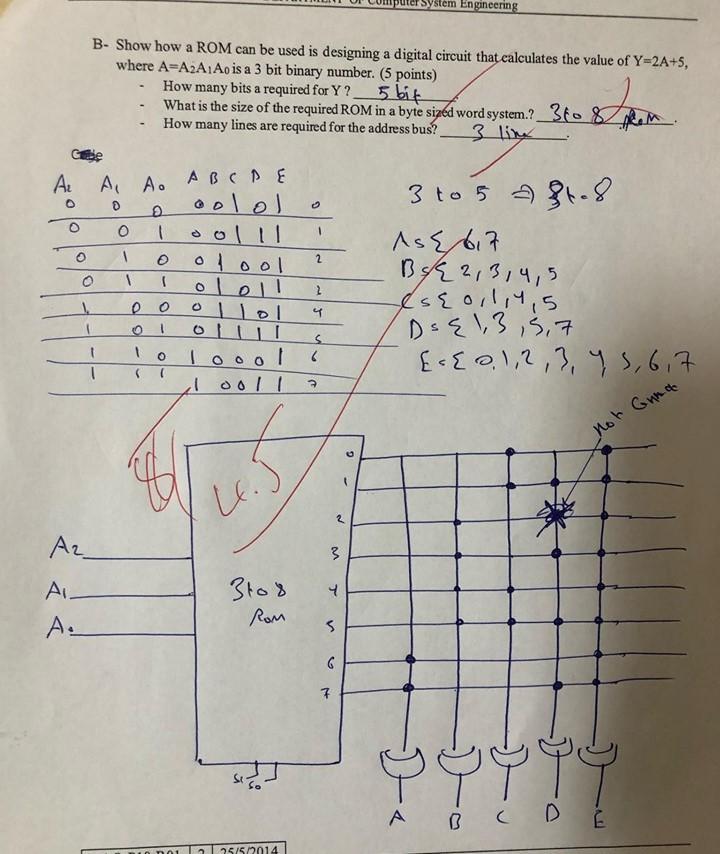 OF Computer System Engineering
B- Show how a ROM can be used is designing a digital circuit that calculates the value of Y=2A+5,
where A=A2A1A0 is a 3 bit binary number. (5 points)
- How many bits a required for Y ? 5 bit
- What is the size of the required ROM in a byte sized word system.? 3 to 8 Rom
- How many lines are required for the address bus? 3 line
A2 A1 A0 A B C D E
0 0 0 0 0 1 0 1 0
0 0 1 0 0 1 1 1 1
0 1 0 0 1 0 0 1 2
0 1 1 0 1 0 1 1 3
1 0 0 0 1 1 0 1 4
1 0 1 0 1 1 1 1 5
1 1 0 1 0 0 0 1 6
1 1 1 1 0 0 1 1 7
3 to 5 ⇒ 3 to 8
A = Σ 6,7
B = Σ 2,3,4,5
C = Σ 0,1,4,5
D = Σ 1,3,5,7
E = Σ 0,1,2,3,4,5,6,7
4.5
0
1
2
A2 3
A1 3 to 8 4
A0 Rom 5
6
7
S1 S0
A B C D E
2 25/5/2014